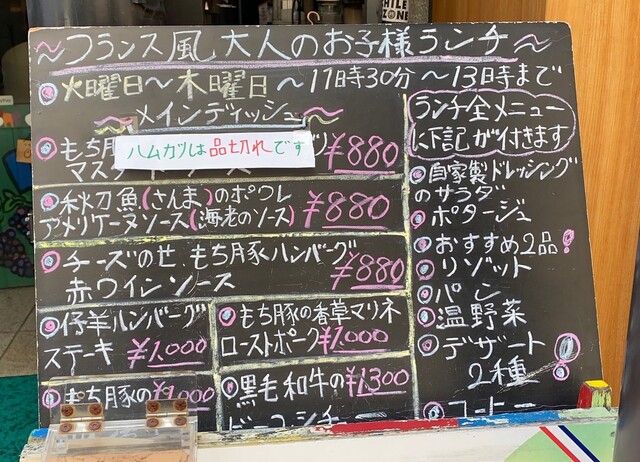 〜フランス風大人のお子様ランチ〜
火曜日〜木曜日〜11時30分〜13時まで
〜メインディッシュ〜
もち豚
ハムカツは品切れです
マスタ
¥880
秋刀魚(さんま)のポワレ
アメリケーヌソース(海老のソース)
¥880
チーズのせもち月豚ハンバーグ
赤ワインソース
¥880
仔羊ハンバーグ
ステーキ ¥1,000
もち豚の香草マリネ
ローストポーク¥1,000
もち豚の¥1,000
黒毛和牛の¥1300
ビーフシチュー
ランチ全メニュー
に下記が付きます
自家製ドレッシング
のサラダ
ポタージュ
おすすめ2品!
リゾット
パン
温野菜
デザート
2種!
コーヒー